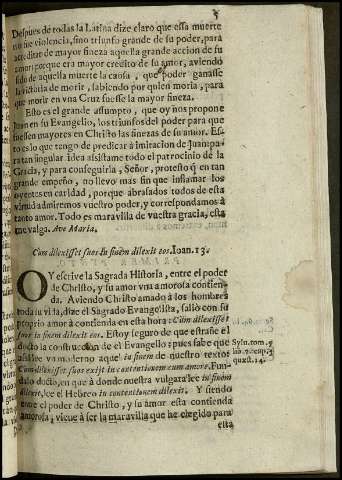 5
Despues de todas la Latina dize claro que essa muerte
no fue violencia, sino triunfo grande de su poder, para
acreditar de mayor fineza aquella grande accion de su
amor; porque era mayor credito de su amor, aviendo
sido de aquella muerte la causa, que el poder ganasse
la victoria de morir, sabiendo por quien moria, para
que morir en vna Cruz fuesse la mayor fineza.
Esto es el grande assumpto, que oy nos propone
Iuan en su Evangelio, los triunfos del poder para que
fuessen mayores en Christo las finezas de su amor. Es-
to es lo que tengo de predicar à imitacion de Juan: pa-
ra tan singular idea assistame todo el patrocinio de la
Gracia, y para conseguirla, Señor, protesto q̃ en tan
grande empeño, no llevo mas fin que inflamar los
oyentes en caridad, porque abrasados todos de esta
virtud admiremos vuestro poder, y correspondamos à
tanto amor. Todo es maravilla de vuestra gracia, esta
me valga. Ave Maria.
Cùm dilexisset suos in finem dilexit eos. Ioan. 13.
OY escrive la Sagrada Historia, entre el poder
de Christo, y su amor vna amorosa contien-
da. Aviendo Christo amado à los hombres
toda su vida, dize el Sagrado Evangelista, saliò con su
proprio amor à contienda en esta hora: Cùm dilexisset
suos in finem dilexit eos. Estoy seguro de que estrañe el
docto la construccion de el Evangelio; pues sabe que
assi lee vn moderno aquel in finem de nuestro texto:
Cùm dilexisset suos exijt in contentionem cum amore. Fun-
dalo docto, en que à donde nuestra vulgara lee in finem
dilexit, lee el Hebreo in contentionem dilexit. Y siendo
entre el poder de Christo, y su amor esta contienda
amorosa, viene à ser la maravilla que he elegido para
esta
Sylu. tom. 5
lib. 2. cap. 3
quæst. 14.